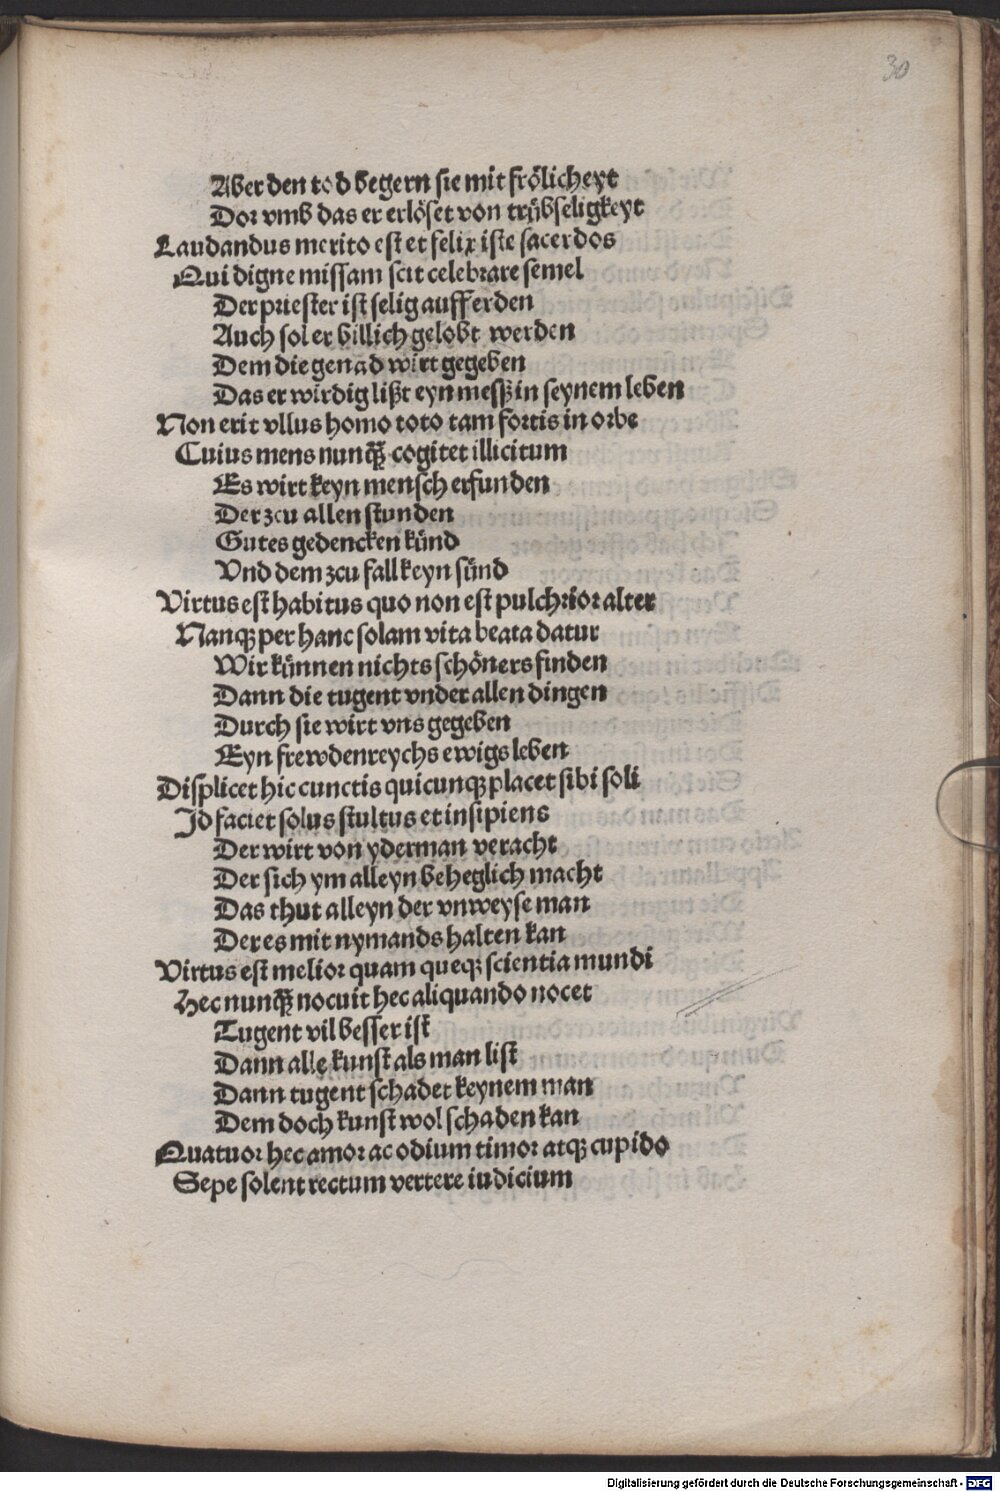 30
Aber den tod begern sie mit frölicheyt
Dor vmb das er erlöset von trübseligkeyt
Laudandus merito est et felix iste sacerdos
Qui digne missam scit celebrare semel
Der priester ist selig auff erden
Auch sol er billich gelobt werden
Dem die genad wirt gegeben
Das er wirdig lißt eyn messz in seynem leben
Non erit vllus homo toto tam fortis in orbe
Cuius mens nunqꝫ cogitet illicitum
Es wirt keyn mensch erfunden
Der zcu allen stunden
Gutes gedencken künd
Vnd dem zcu fall keyn sünd
Virtus est habitus quo non est pulchrior alter
Nanqꝫ per hanc solam vita beata datur
Wir künnen nichts schöners finden
Dann die tugent vnder allen dingen
Durch sie wirt vns gegeben
Eyn frewdenreychs ewigs leben
Displicet hic cunctis quicunqꝫ placet sibi soli
Id faciet solus stultus et insipiens
Der wirt von yderman veracht
Der sich ym alleyn beheglich macht
Das thut alleyn der vnweyse man
Der es mit nymands halten kan
Virtus est melior quam queqꝫ scientia mundi
Hec nunqꝫ nocuit hec aliquando nocet
Tugent vil besser ist
Dann alle kunst als man list
Dann tugent schadet keynem man
Dem doch kunst wol schaden kan
Quatuor hec amor ac odium timor atqꝫ cupido
Sepe solent rectum vertere iudicium
Digitalisierung gefördert durch die Deutsche Forschungsgemeinschaft - DFG